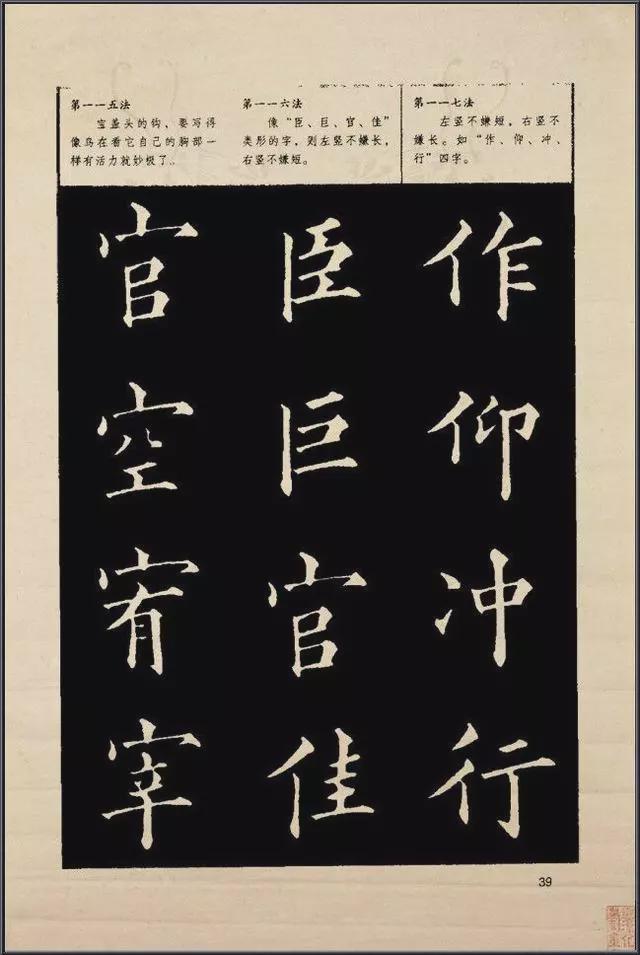 第一一五法
宝盖头的钩、要写得
像鸟在看它自己的胸部一
样有活力就妙极了..
第一一六法
像“臣、巨、官、佳”
类形的字，则左竖不嫌长，
右竖不嫌短。
第一一七法
左竖不嫌短，右竖不
嫌长。如“作、仰、冲、
行”四字。
作
仰
冲
行
臣
巨
官
佳
官
空
宥
宰
39